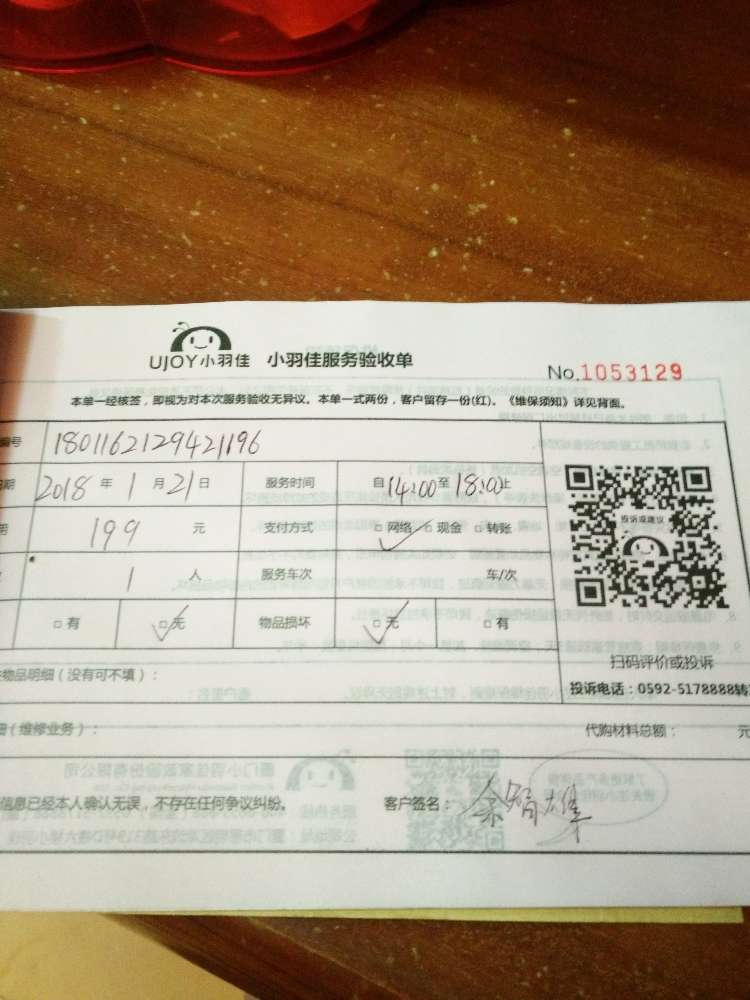 UJOY小羽佳 小羽佳服务验收单
No.1053129
本单一经核签，即视为对本次服务验收无异议。本单一式两份，客户留存一份(红)。《维保须知》详见背面。
编号 1801162129421196
期 2018 年 1 月 21 日 服务时间 自 14:00 至 18:00 止
199 元 支付方式 □ 网络 □ 现金 □ 转账
1 人 服务车次 车/次
□ 有 □ 无 物品损坏 □ 无 □ 有
投诉或建议
扫码评价或投诉
投诉电话：0592-5178888转
物品明细（没有可不填）：
（维修业务）： 代购材料总额： 元
信息已经本人确认无误，不存在任何争议纠纷。 客户签名：